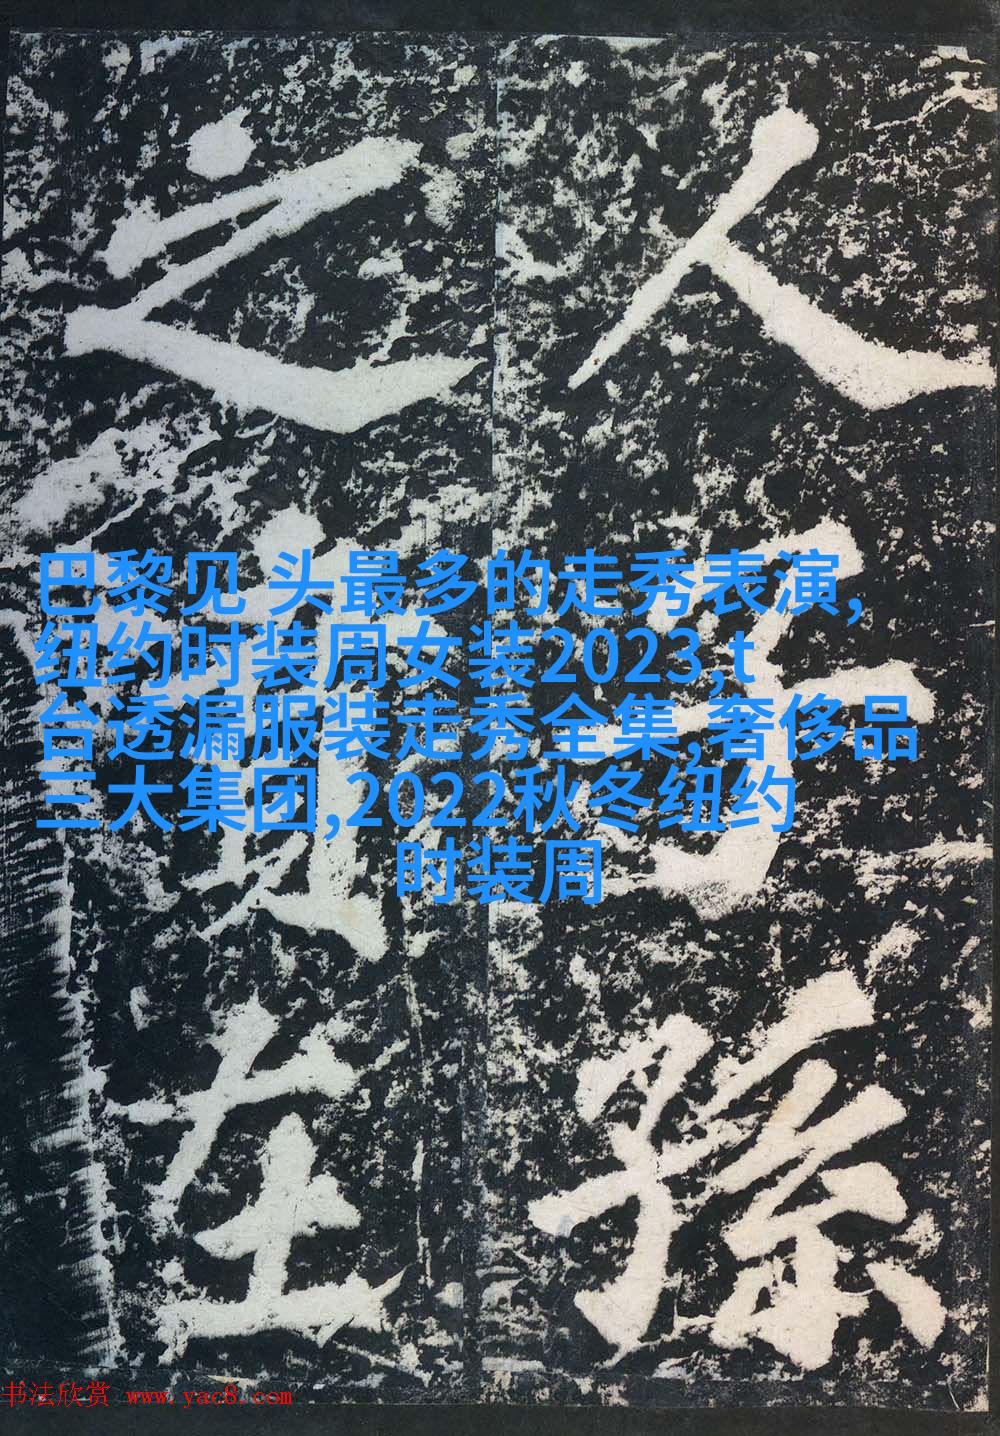 人子孫
之在
巴黎见 头最多的走秀表演,
纽约时装周女装2023,t
台透漏服装走秀全集,奢侈品
三大集团,2022秋冬纽约
时装周
书法欣赏 www.yac8.com